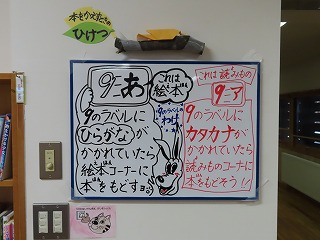 本をかえすときの
ひけつ
9ニあ
これは
絵本
9のラベルに
ひらがなが
かかれていたら
絵本コーナーに
本をもどすヨ
これは読みもの
9ニア
9のラベルに
カタカナが
かかれていたら
読みものコーナーに
本をもどそう!!